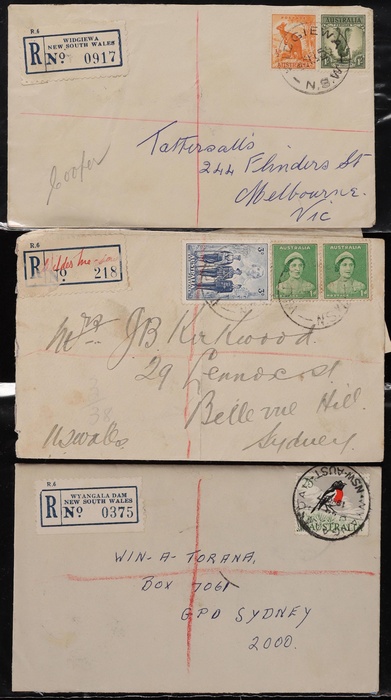 R.6
WIDGIEWA
NEW SOUTH WALES
R No 0917
AUSTRALIA
N.S.W.
Cooper
Tattersalls
244 Flinders St
Melbourne.
Vic
R.6
R No 218
AUSTRALIA
AUSTRALIA
Mrs J B Kirkwood.
29
Bellevue Hill.
Sydney.
R.6
WYANGALA DAM
NEW SOUTH WALES
R No 0375
NSW-AUST
AUSTRALIA
WIN-A-TORANA,
BOX 7061
GPO SYDNEY
2000.